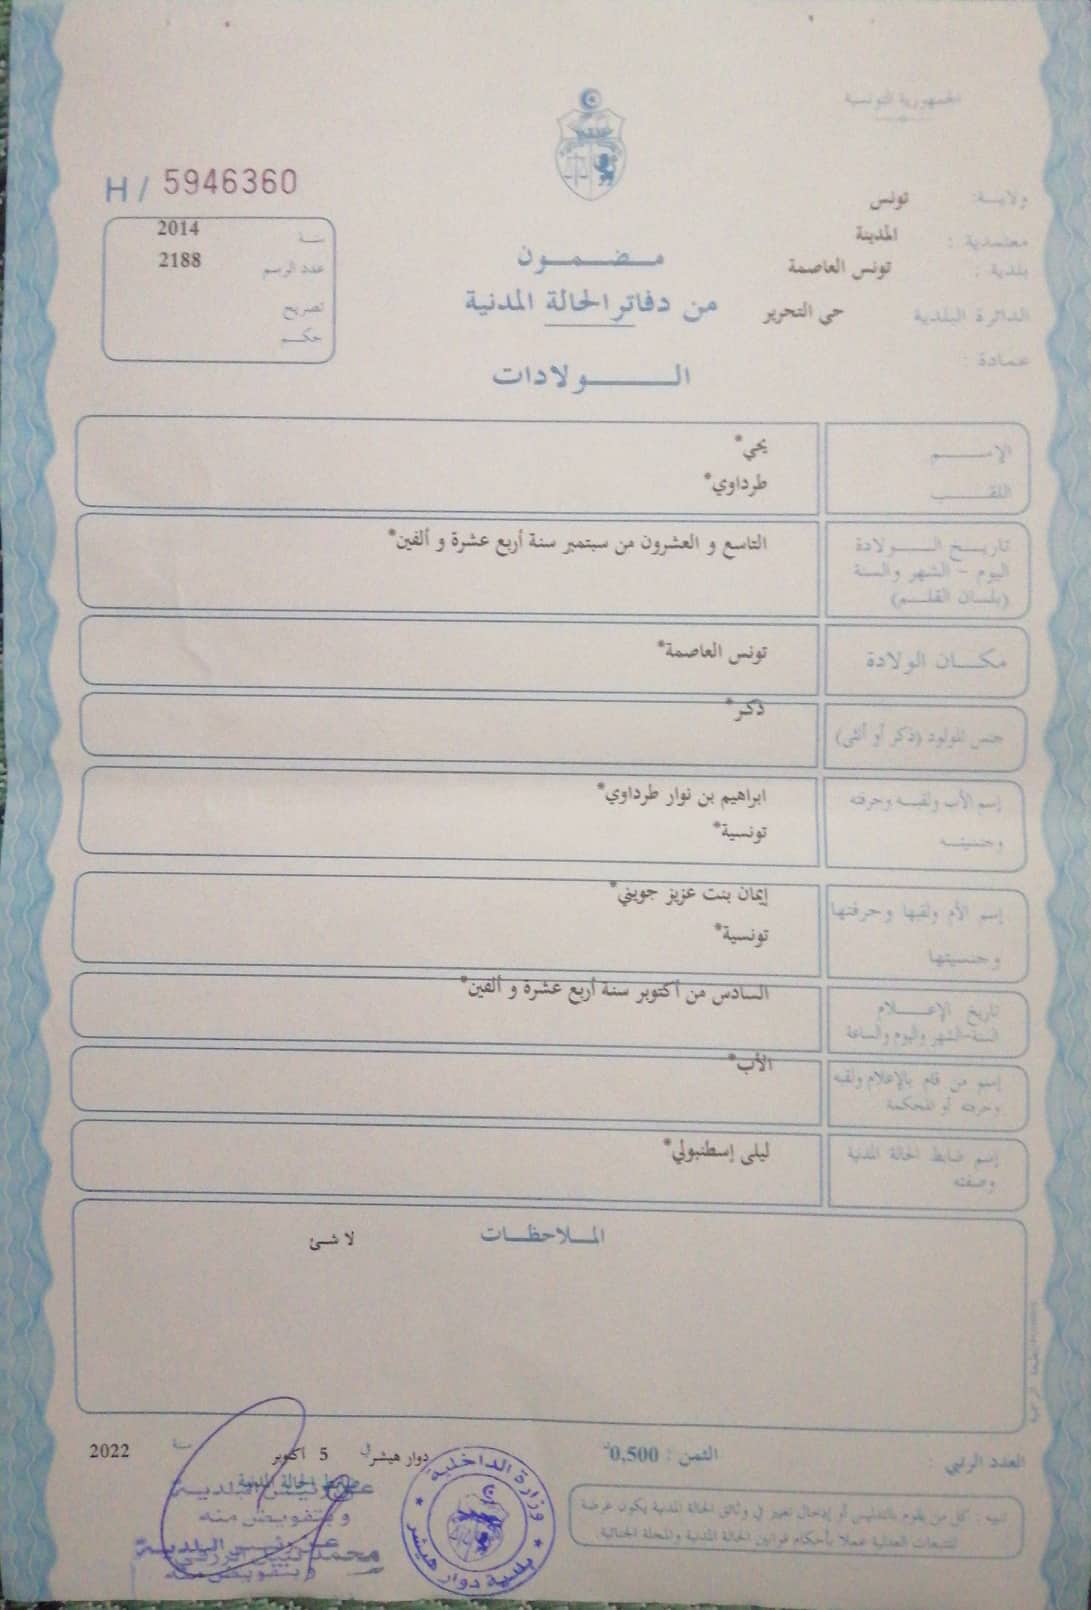 الجمهورية التونسية
H / 5946360
ولاية: تونس
معتمدية : المدينة
بلدية : تونس العاصمة
الدائرة البلدية حي التحرير
عمادة :
سنة 2014
عدد الرسم 2188
تصريح
حكم
مضمون
من دفاتر الحالة المدنية
الولادات
الإسم يحي*
اللقب طرداوي*
تاريخ الولادة التاسع و العشرون من سبتمبر سنة أربع عشرة و ألفين*
اليوم - الشهر والسنة
(بلسان القلم)
مكان الولادة تونس العاصمة*
جنس المولود (ذكر أو أنثى) ذكر*
إسم الأب ولقبه وحرفته ابراهيم بن نوار طرداوي*
وجنسيته تونسية*
إسم الأم ولقبها وحرفتها إيمان بنت عزيز جويني*
وجنسيتها تونسية*
تاريخ الإعلام السادس من أكتوبر سنة أربع عشرة و ألفين*
السنة-الشهر واليوم والساعة
إسم من قام بالإعلام ولقبه الأب*
وحرفته أو المحكمة
إسم ضابط الحالة المدنية ليلى إسطنبولي*
وصفته
الملاحظات
لا شئ
العدد الرتبي :
الثمن : 0,500
دوار هيشر في 5 أكتوبر سنة 2022
ضابط الحالة المدنية
عن رئيس البلدية
وبتفويض منه
وزارة الداخلية
بلدية دوار هيشر
تنبيه : كل من يقوم بالتدليس أو إدخال تغيير في وثائق الحالة المدنية يكون عرضة
للتتبعات العدلية عملا بأحكام قوانين الحالة المدنية والمجلة الجنائية.